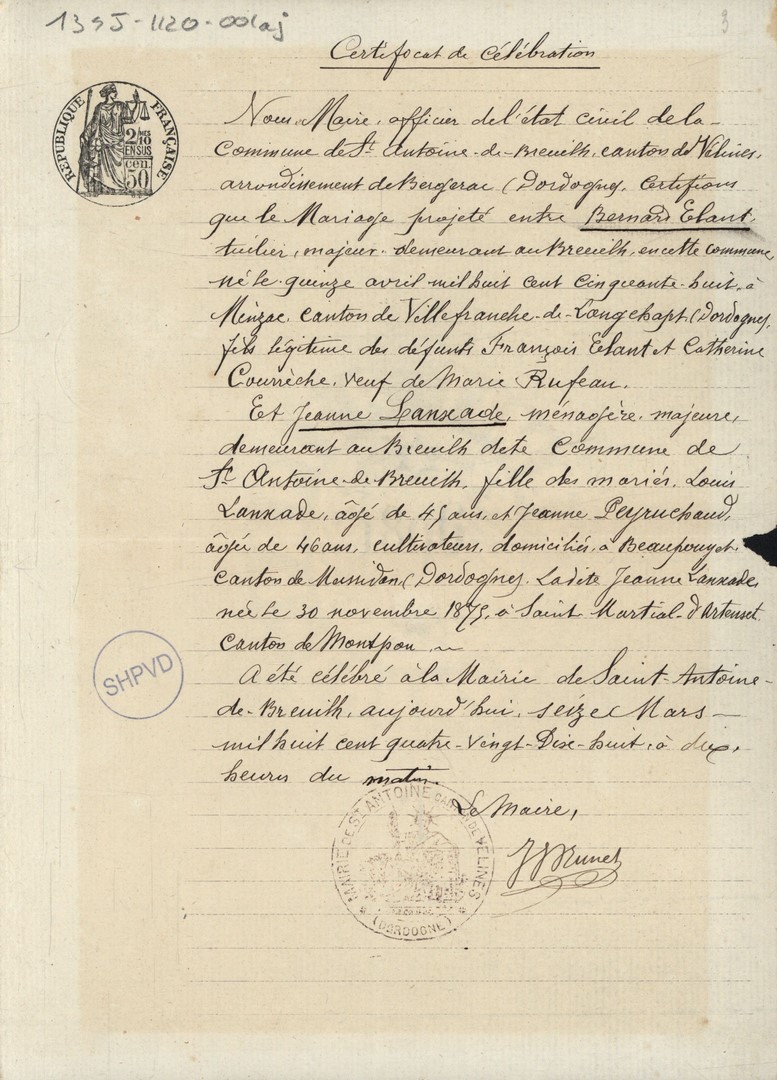 1395-1120-001aj
3
Certifocat de célébration
RÉPUBLIQUE FRANÇAISE
2/10
EN SUS
cen.
50
Nous, Maire, officier de l'état civil de la
Commune de St Antoine-de-Breuilh, canton de Vélines,
arrondissement de Bergerac (Dordogne), Certifions
que le Mariage projeté entre Bernard Elant,
tuilier, majeur, demeurant au Breuilh, en cette commune,
né le quinze avril mil huit cent cinquante-huit, à
Minzac, canton de Villefranche-de-Longchapt, (Dordogne),
fils légitime des défunts François Elant et Catherine
Courrèche, veuf de Marie Rufeau.
Et Jeanne Lanxade, ménagère, majeure,
demeurant au Breuilh dete Commune de
St Antoine-de-Breuilh, fille des mariés, Louis
Lanxade, âgé de 45 ans, et Jeanne Peyruchaud,
âgée de 46 ans, cultivateurs, domiciliés, à Beaupouyet,
canton de Mussidan, (Dordogne). Ladite Jeanne Lanxade,
née le 30 novembre 1875, à Saint Martial-d'Artenset,
Canton de Montpon.
A été célébré à la Mairie de Saint-Antoine-
de-Breuilh, aujourd'hui, seize Mars
mil huit cent quatre-vingt-Dix-huit, à dix,
heures du matin.
Le Maire,
SHPVD
MAIRIE DE ST ANTOINE CANTON DE VELINES
(DORDOGNE)